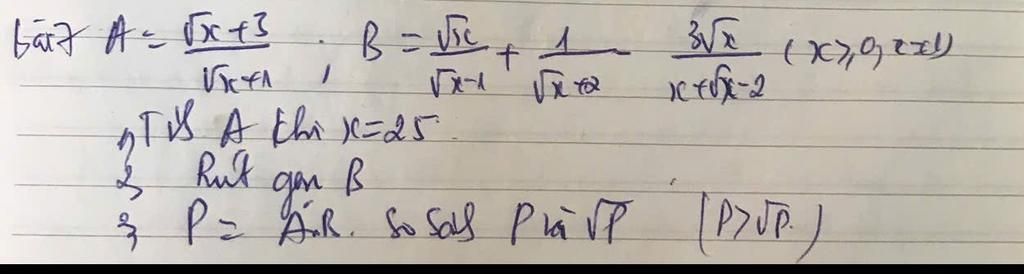 bài 7 A = (√x+3)/(√x+1) ; B = √x/(√x-1) + 1/(√x+2) - 3√x/(x+√x-2) (x≥0, x≠1)
1, T A khi x=25.
2, Rút gọn B
3, P = A.B. So P và √P (P>√P.)